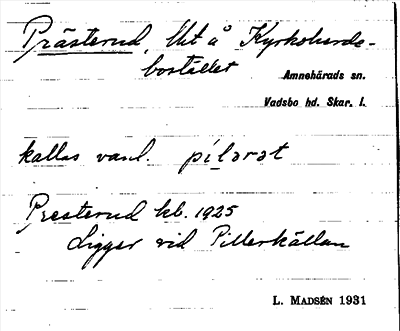 Prästerud, Utå Kyrkoherde-
bostället
Amnehärads sn.
Vadsbo hd. Skar. l.
kallas vanl. pílərət
Presterud kb. 1925
Ligger vid Pillerkällan
L. MADSÉN 1931